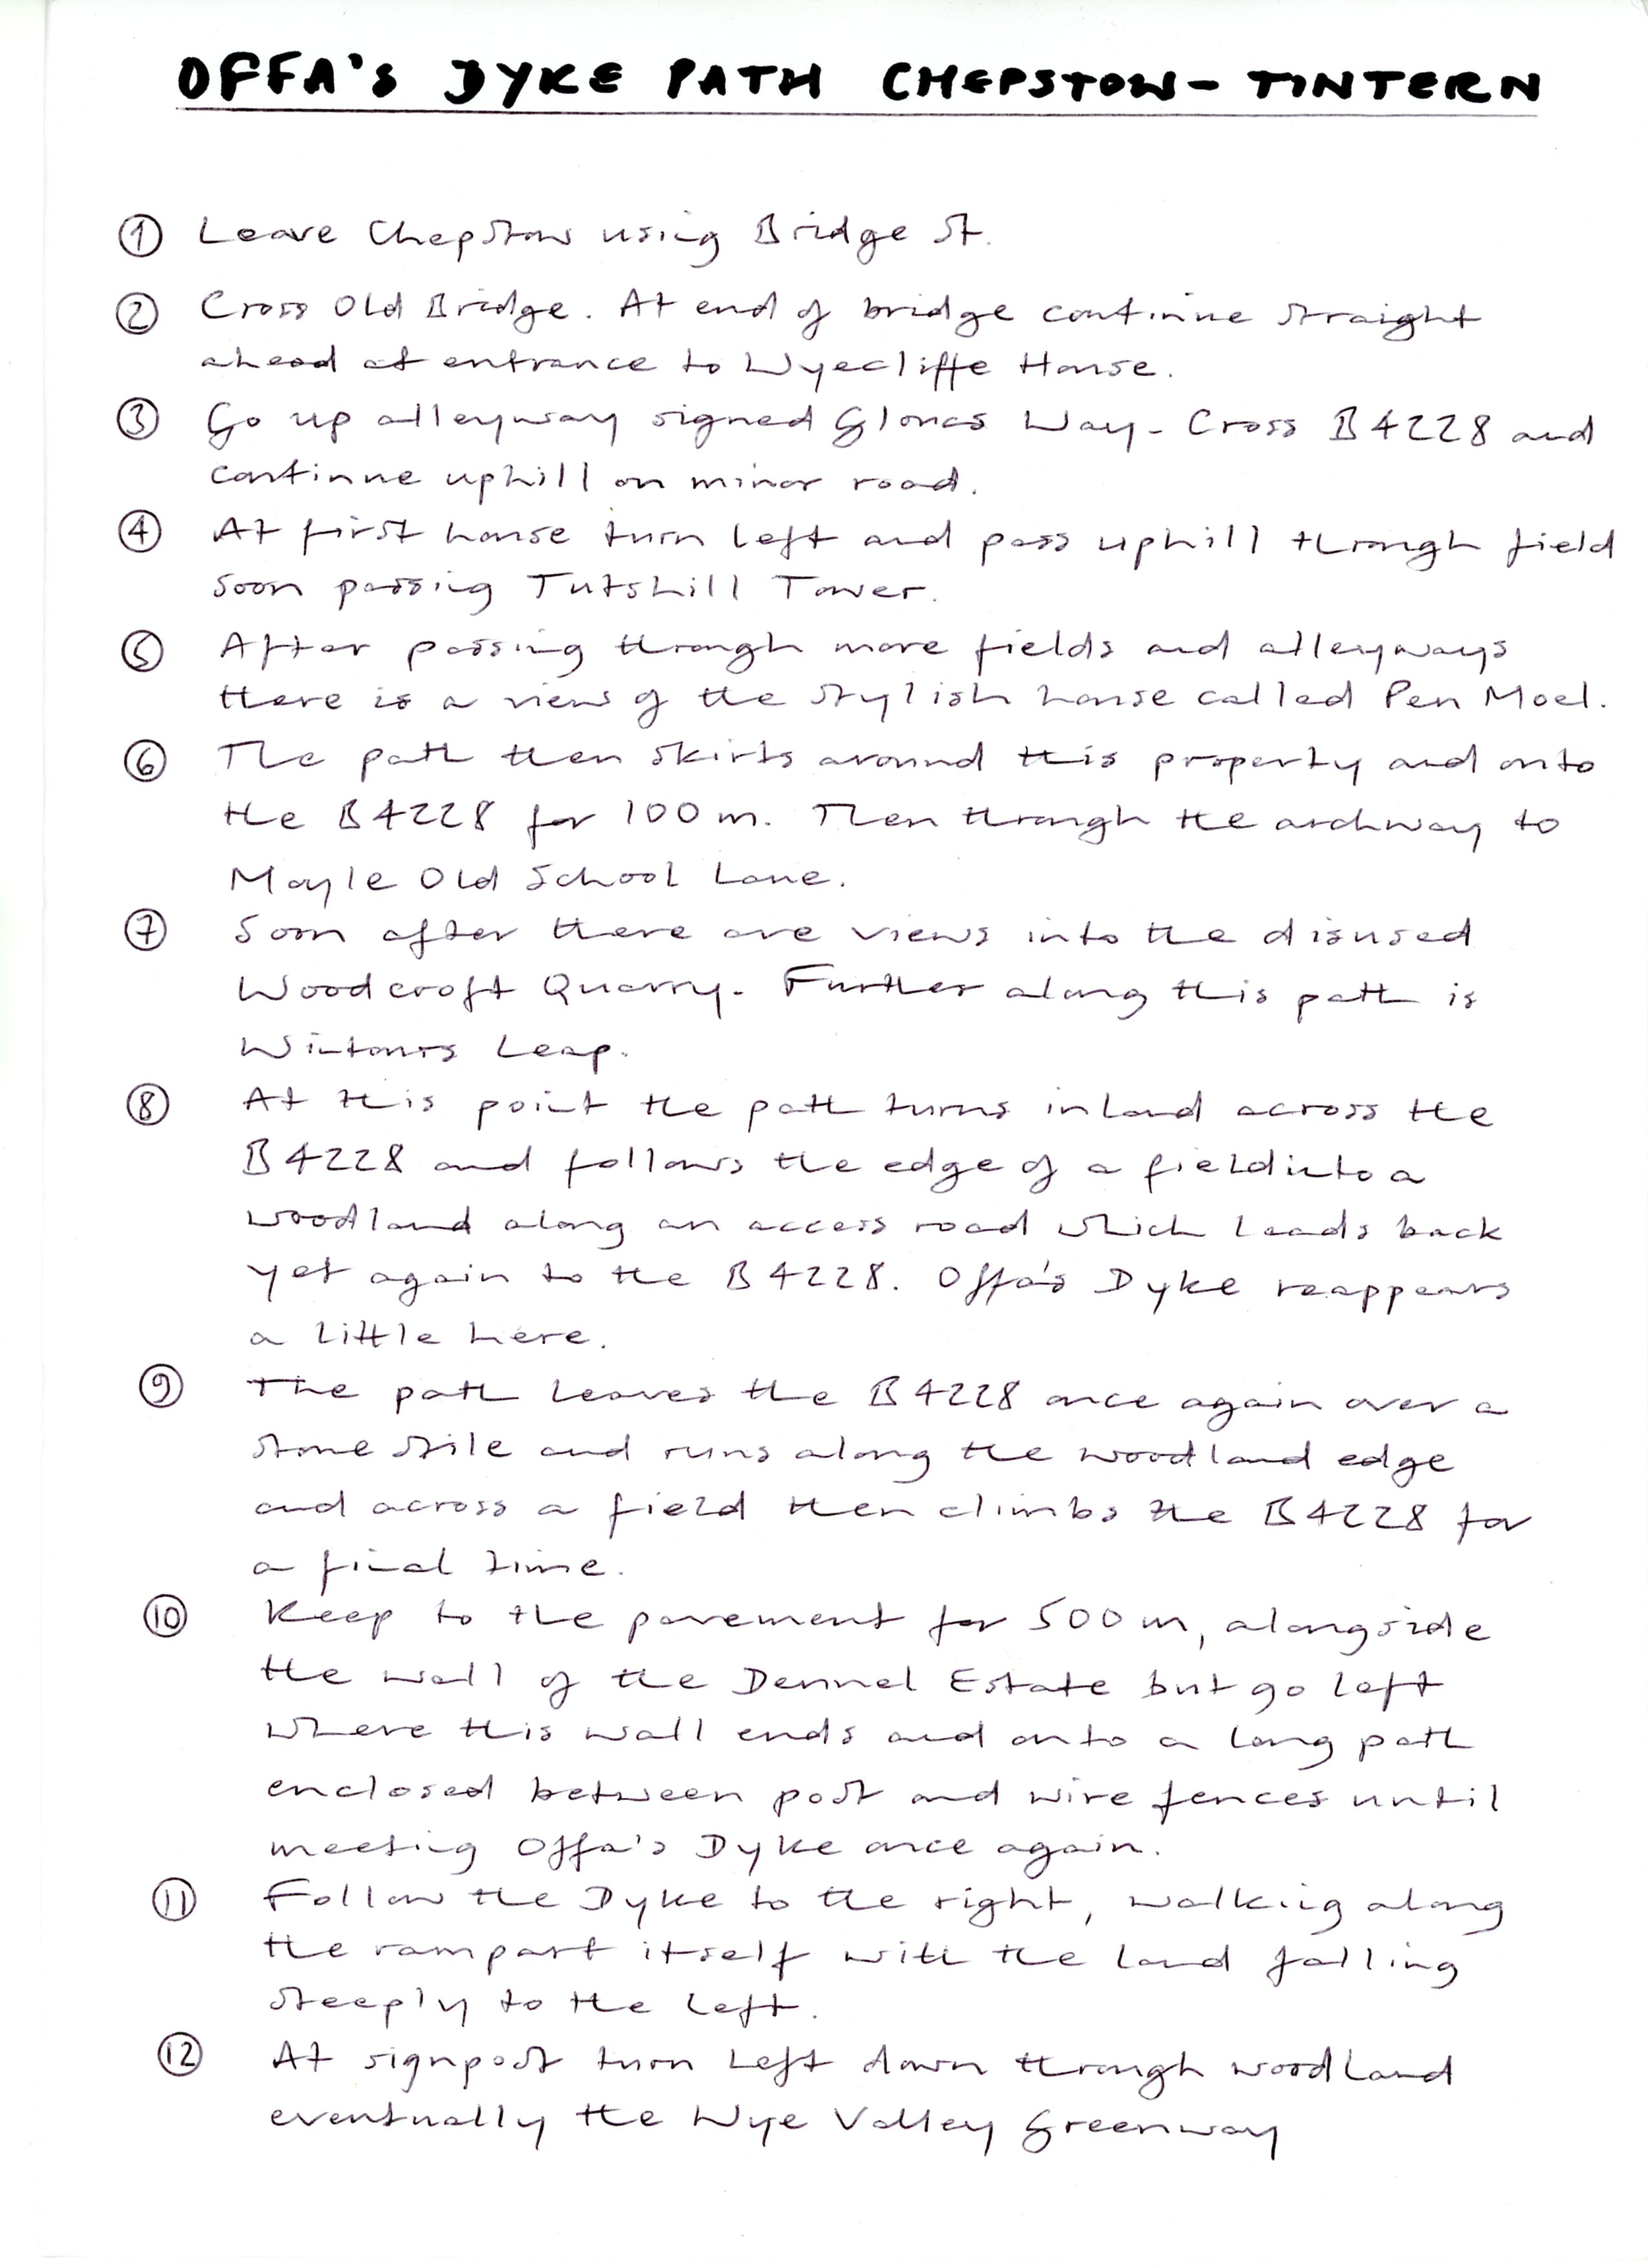 OFFA'S DYKE PATH CHEPSTOW - TINTERN
① Leave Chepstow using Bridge St.
② Cross Old Bridge. At end of bridge continue straight
ahead at entrance to Wyecliffe House.
③ Go up alleyway signed Gloucs Way. Cross B4228 and
continue uphill on minor road.
④ At first house turn left and pass uphill through field
soon passing Tutshill Tower.
⑤ After passing through more fields and alleyways
there is a view of the stylish house called Pen Moel.
⑥ The path then skirts around this property and onto
the B4228 for 100m. Then through the archway to
Moyle Old School Lane.
⑦ Soon after there are views into the disused
Woodcroft Quarry. Further along this path is
Wintours Leap.
⑧ At this point the path turns inland across the
B4228 and follows the edge of a field into a
woodland along an access road which leads back
yet again to the B4228. Offa's Dyke reappears
a little here.
⑨ The path leaves the B4228 once again over a
stone stile and runs along the woodland edge
and across a field then climbs the B4228 for
a final time.
⑩ Keep to the pavement for 500m, alongside
the wall of the Dennel Estate but go left
where this wall ends and onto a long path
enclosed between post and wire fences until
meeting Offa's Dyke once again.
⑪ Follow the Dyke to the right, walking along
the rampart itself with the land falling
steeply to the left.
⑫ At signpost turn left down through woodland
eventually the Wye Valley Greenway